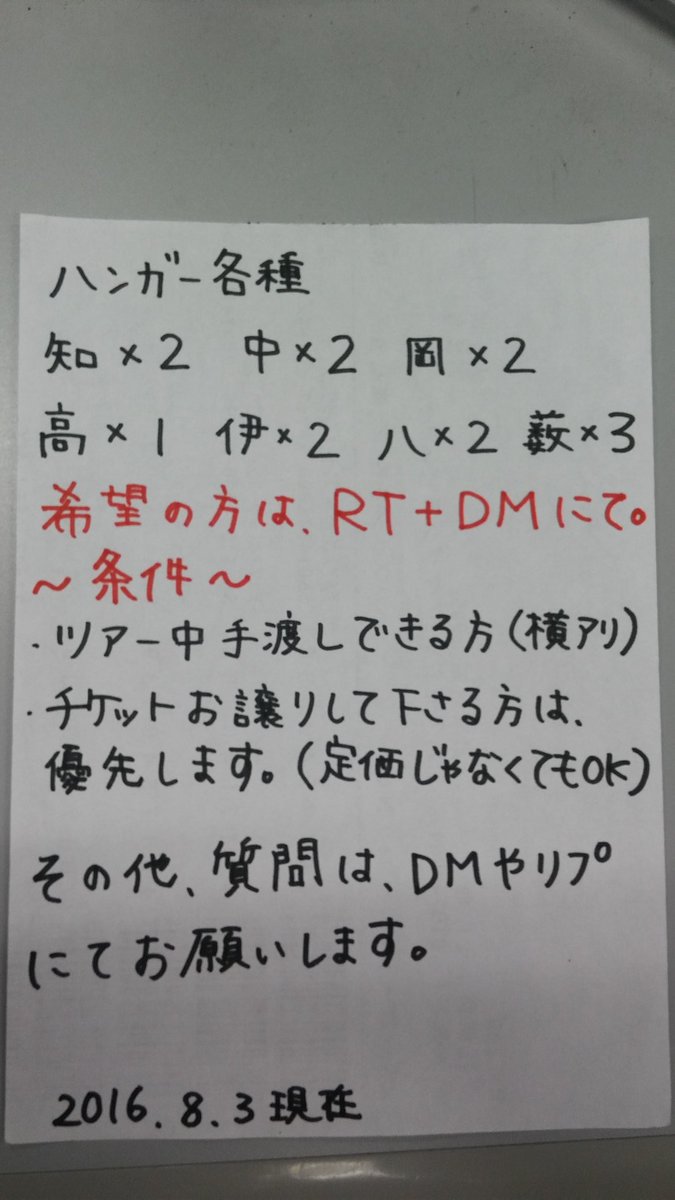 ハンガー各種
知×2 中×2 岡×2
高×1 伊×2 八×2 薮×3
希望の方は、RT+DMにて。
～条件～
・ツアー中手渡しできる方(横アリ)
・チケットお譲りして下さる方は、
優先します。(定価じゃなくてもOK)
その他、質問は、DMやリプ
にてお願いします。
2016.8.3現在